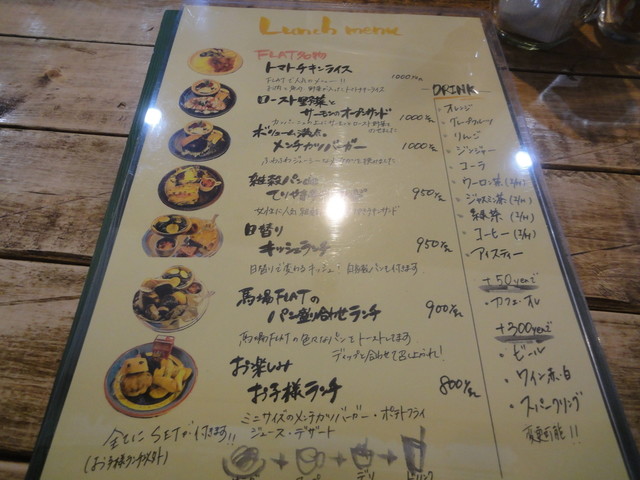 Lunch menu
FLAT名物
トマトチキンライス
1000yen
FLATで人気のメニュー!!
ロースト野菜と
サーモンのオープンサンド
1000yen
ボリューム満点。
メンチカツバーガー
1000yen
雑穀パンの
てりやき
950yen
女性に人気
日替り
キッシュランチ
950yen
日替りで変わるキッシュ!自家製パンも付きます
馬場FLATの
パン盛り合わせランチ
900yen
馬場FLATの色々なパンをトーストしてます
ディップと合わせて召し上がれ!
お楽しみ
お子様ランチ
800yen
ミニサイズのメンチカツバーガー・ポテトフライ
ジュース・デザート
全てにSETが付きます!!
(お子様ランチ以外)
+ + +
スープ デリ ドリンク
DRINK
・オレンジ
・グレープフルーツ
・りんご
・ジンジャー
・コーラ
・ウーロン茶(I/H)
・ジャスミン茶(I/H)
・緑茶(I/H)
・コーヒー(I/H)
・アイスティー
+50yenで
・カフェ・オレ
+300yenで
・ビール
・ワイン赤・白
・スパークリング
変更可能!!